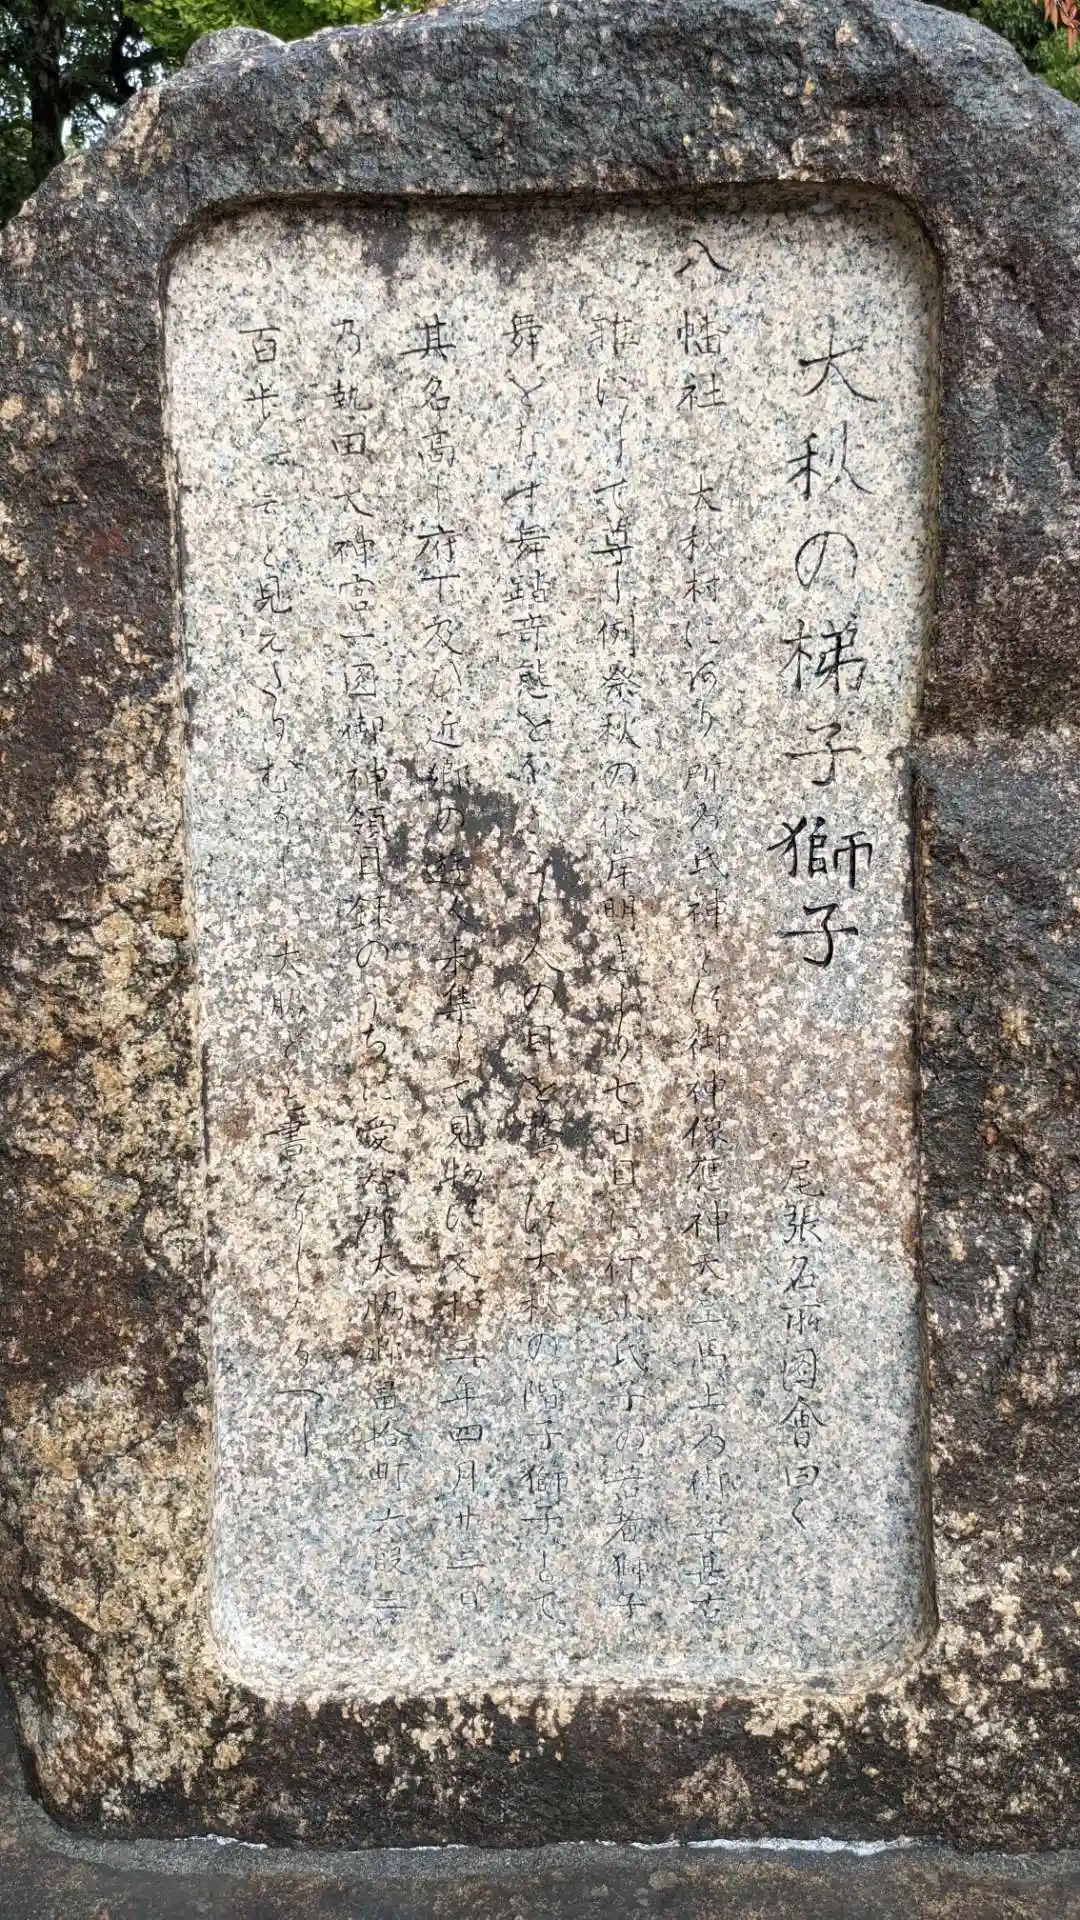 大秋の梯子獅子 尾張名所図會曰く
八幡社 大秋村にあり所の氏神とす御神像應神天皇馬上の御姿甚古
雅にして尊し例祭秋の彼岸明きより七日目に行ふ氏子の若者獅子
舞をなす舞踏奇態を 人の目を驚す大秋の階子獅子とて
其名高し府下及び近郷の遊人来集して見物す又 二年四月廿三日
乃熱田大神宮一圓御神領目録のうちに愛智郡大脇郷畠拾町六段三
百歩 と見え 大脇 と書